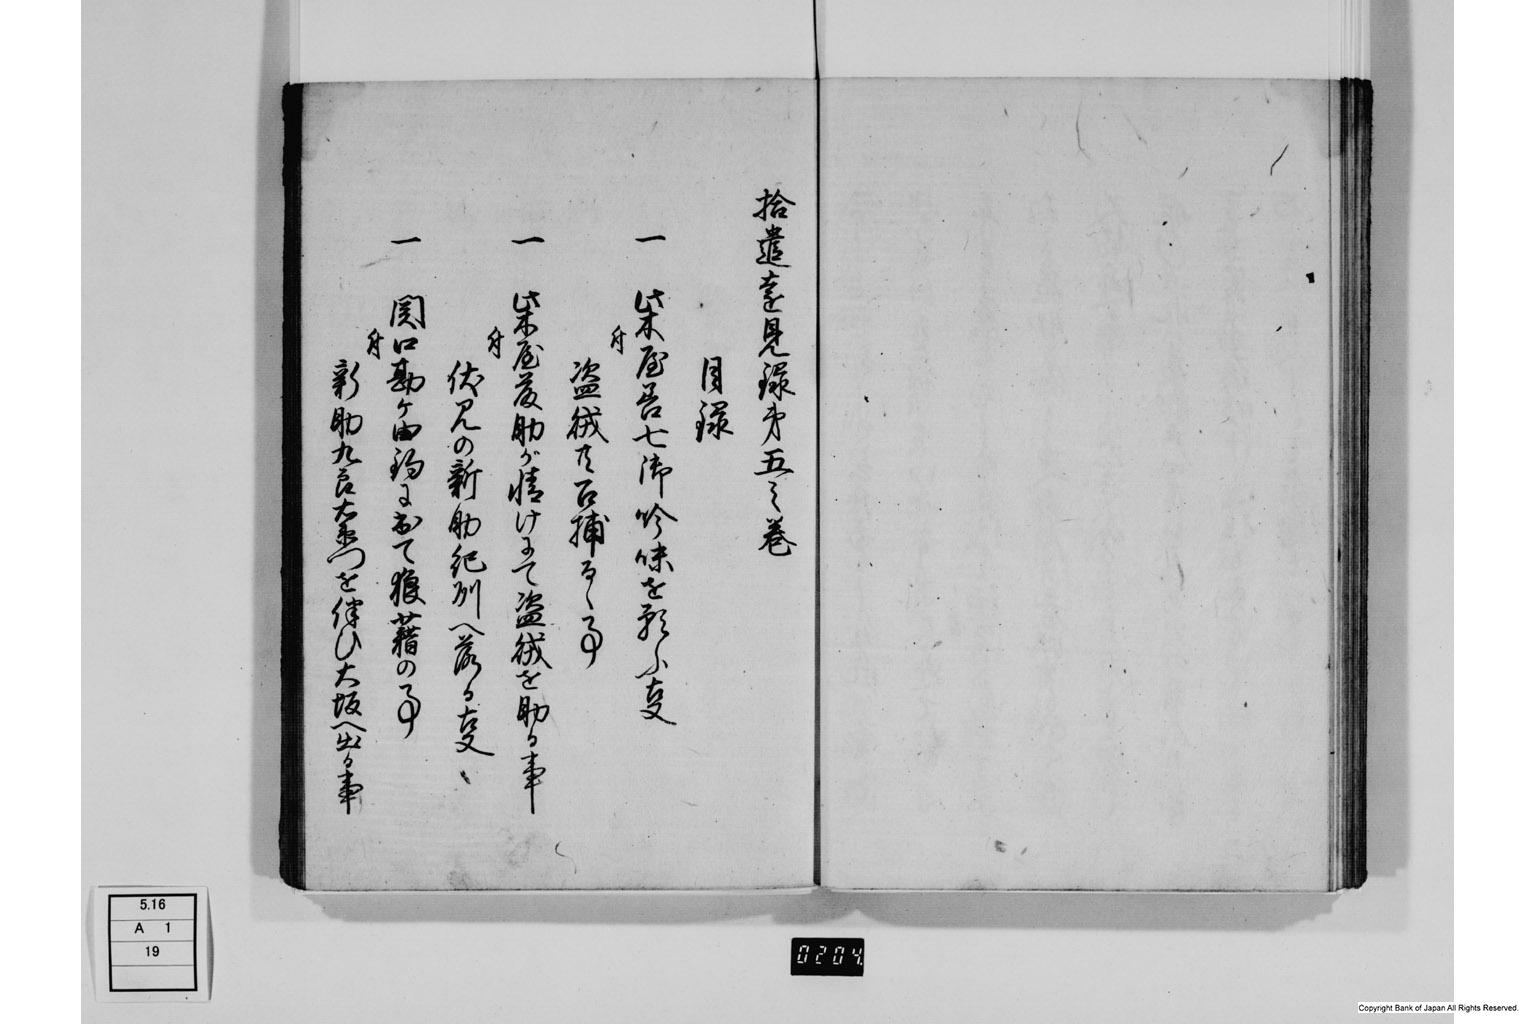 拾遺遠見録第五之巻
目録
一 柴屋善七御吟味を願ふ事
付 盗賊共召捕るゝ事
一 柴屋藤助が情けにて盗賊を助る事
付 伏見の新助紀州へ落る事
一 関口勘ヶ由駒に而て狼藉の事
付 新助九郎右衛門を伴ひ大坂へ出る事
5.16
A 1
19
0204
Copyright Bank of Japan All Rights Reserved.